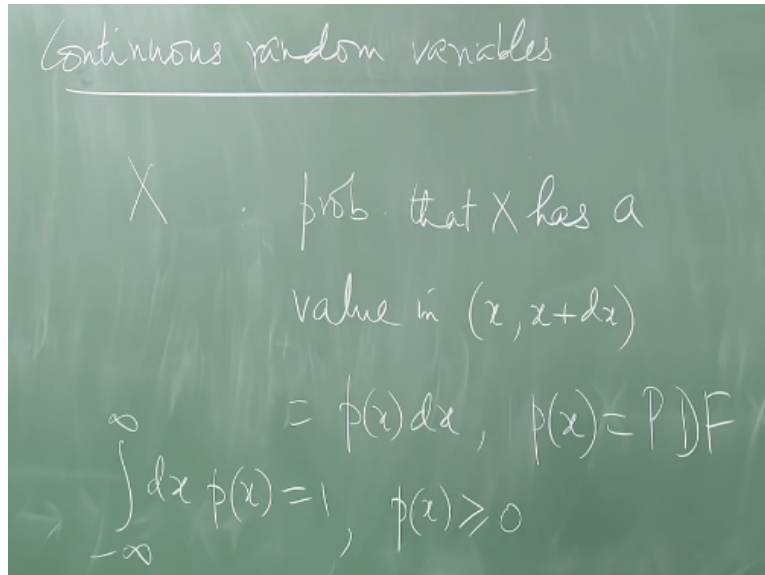 Continuous random variables
X . prob. that X has a
value in (x, x+dx)
= p(x) dx, p(x) = PDF
∫_{-∞}^{∞} dx p(x) = 1, p(x) ≥ 0